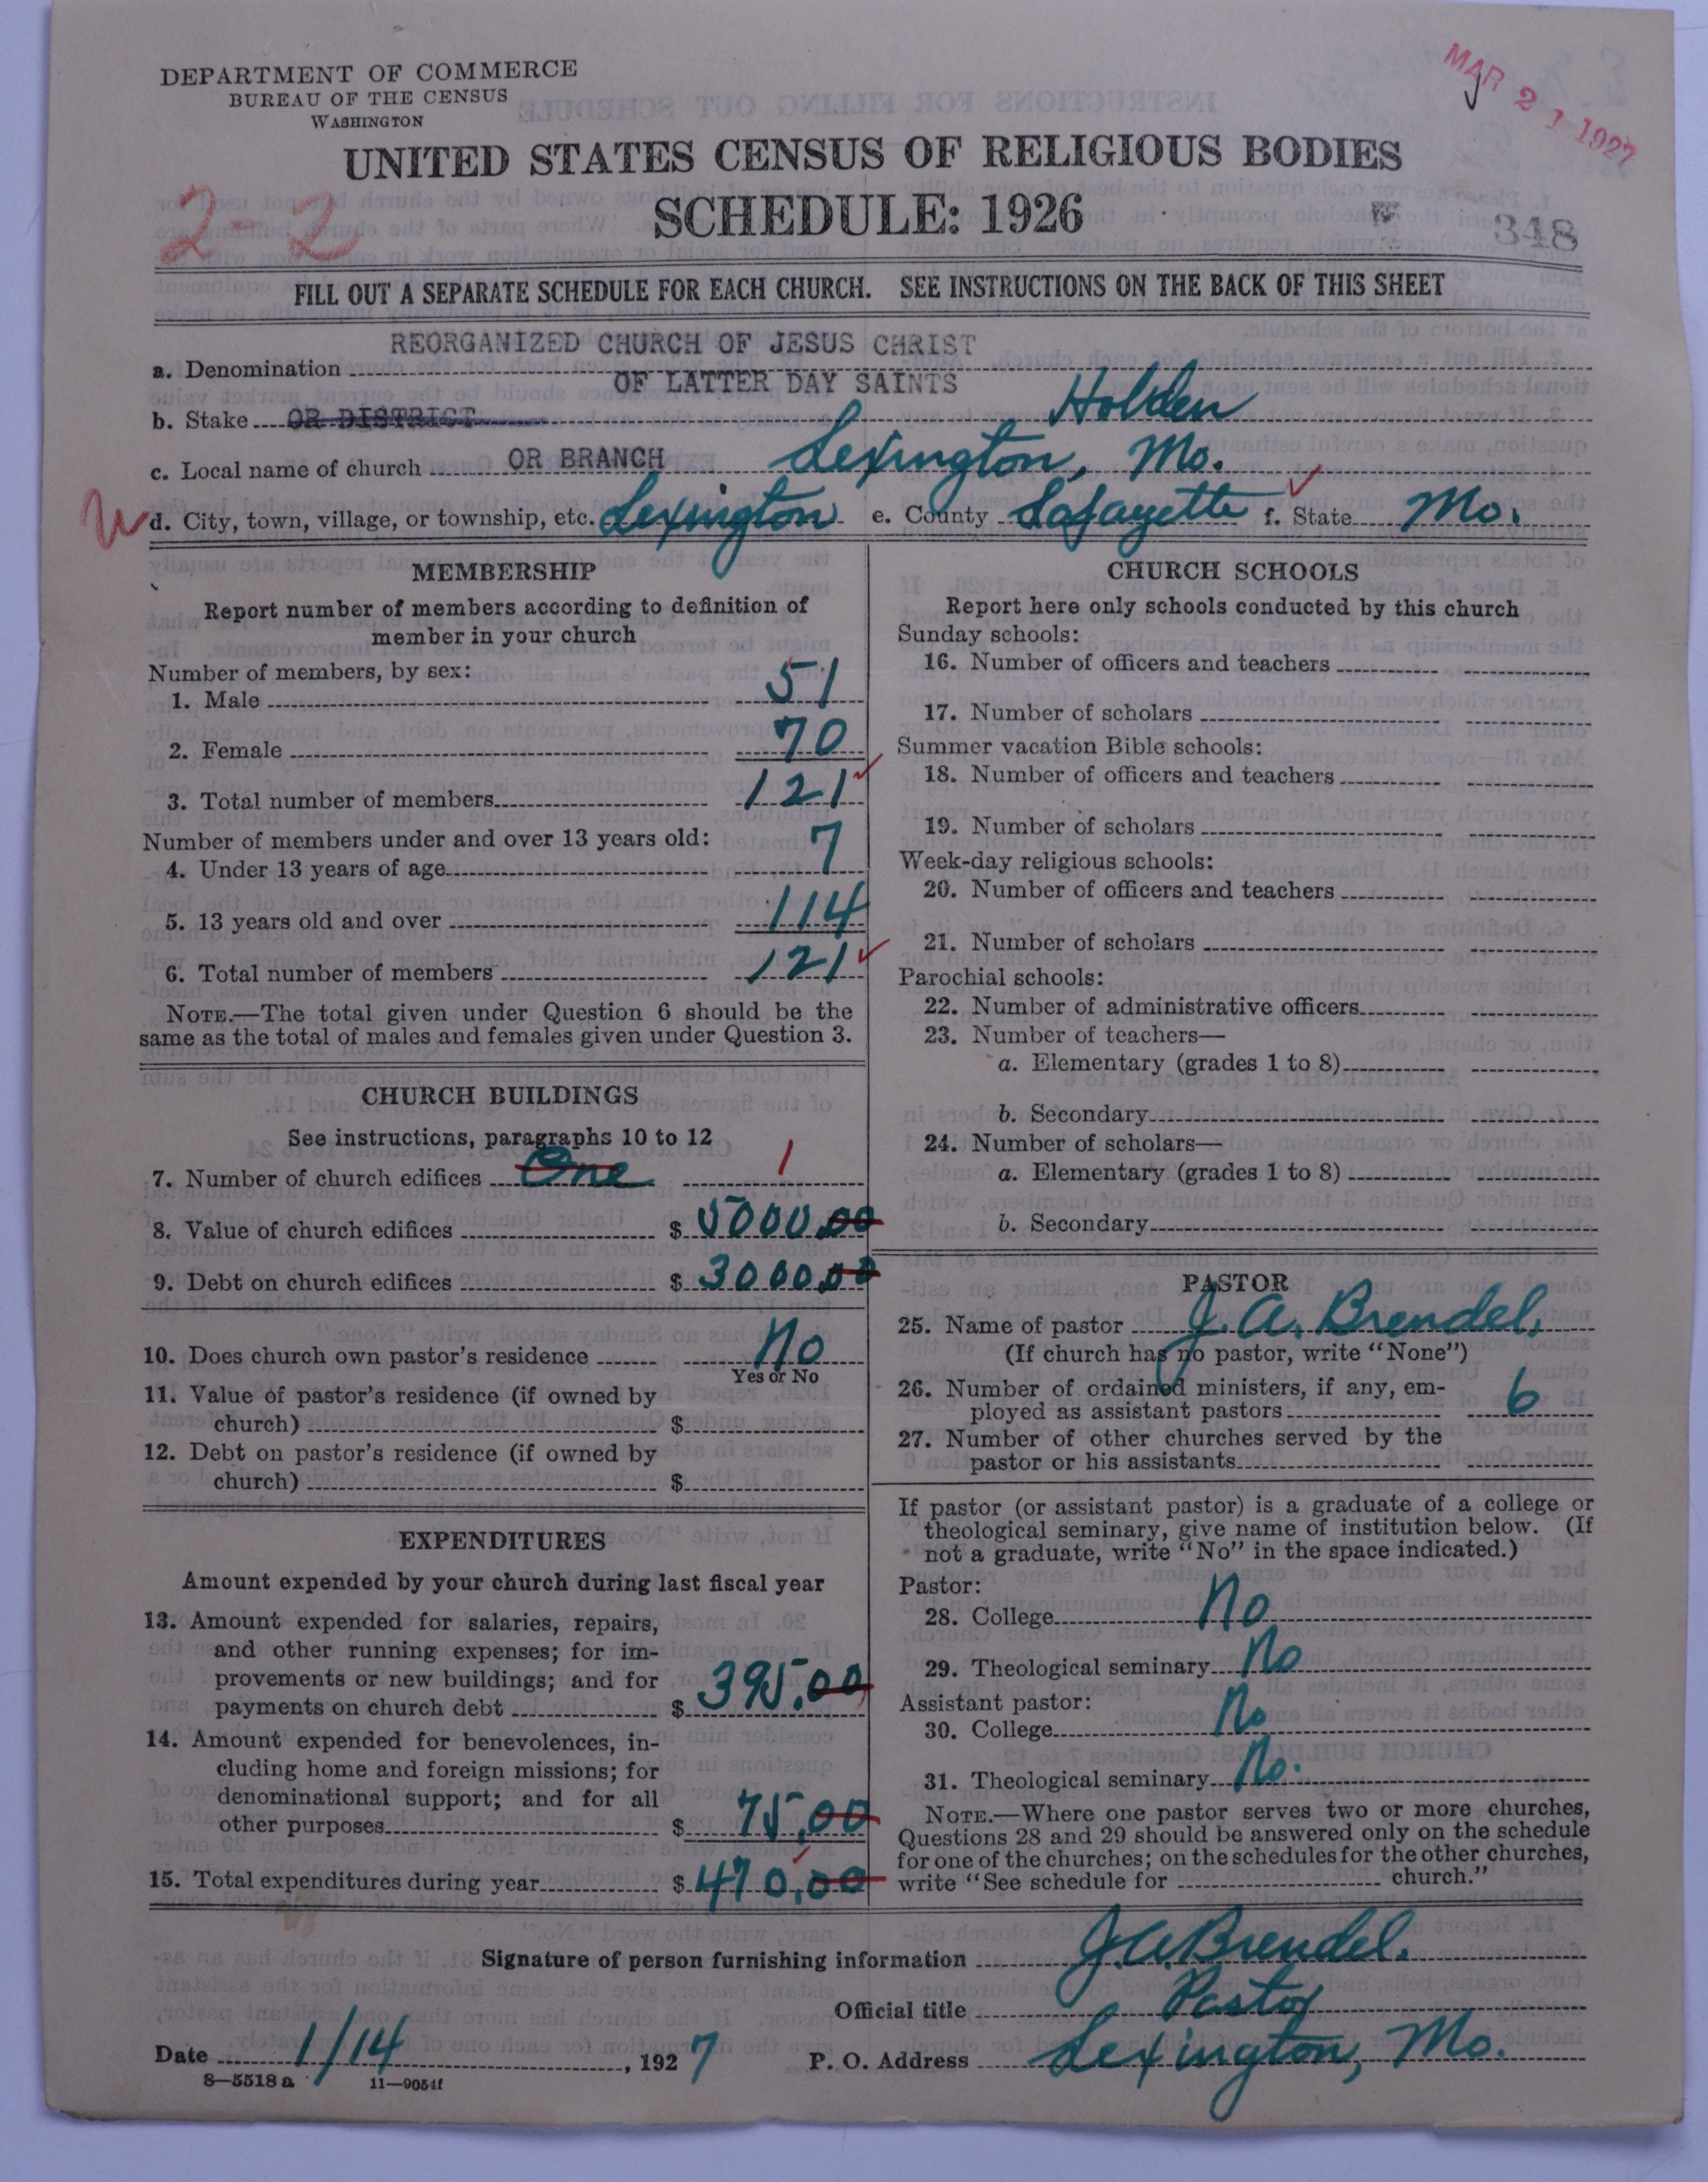 DEPARTMENT OF COMMERCE
BUREAU OF THE CENSUS
WASHINGTON
MAR 21 1927
UNITED STATES CENSUS OF RELIGIOUS BODIES
2-2
SCHEDULE: 1926
348
FILL OUT A SEPARATE SCHEDULE FOR EACH CHURCH. SEE INSTRUCTIONS ON THE BACK OF THIS SHEET
REORGANIZED CHURCH OF JESUS CHRIST
a. Denomination
OF LATTER DAY SAINTS
b. Stake OR DISTRICT Holden
c. Local name of church OR BRANCH Lexington, Mo.
d. City, town, village, or township, etc. Lexington e. County Lafayette f. State Mo.
MEMBERSHIP
Report number of members according to definition of
member in your church
Number of members, by sex:
1. Male 51
2. Female 70
3. Total number of members 121
Number of members under and over 13 years old:
4. Under 13 years of age 7
5. 13 years old and over 114
6. Total number of members 121
NOTE.—The total given under Question 6 should be the
same as the total of males and females given under Question 3.
CHURCH BUILDINGS
See instructions, paragraphs 10 to 12
7. Number of church edifices One 1
8. Value of church edifices $ 5000.00
9. Debt on church edifices $ 3000.00
10. Does church own pastor's residence No
Yes or No
11. Value of pastor's residence (if owned by
church) $
12. Debt on pastor's residence (if owned by
church) $
EXPENDITURES
Amount expended by your church during last fiscal year
13. Amount expended for salaries, repairs,
and other running expenses; for im-
provements or new buildings; and for
payments on church debt $ 395.00
14. Amount expended for benevolences, in-
cluding home and foreign missions; for
denominational support; and for all
other purposes $ 75.00
15. Total expenditures during year $ 470.00
CHURCH SCHOOLS
Report here only schools conducted by this church
Sunday schools:
16. Number of officers and teachers
17. Number of scholars
Summer vacation Bible schools:
18. Number of officers and teachers
19. Number of scholars
Week-day religious schools:
20. Number of officers and teachers
21. Number of scholars
Parochial schools:
22. Number of administrative officers
23. Number of teachers—
a. Elementary (grades 1 to 8)
b. Secondary
24. Number of scholars—
a. Elementary (grades 1 to 8)
b. Secondary
PASTOR
25. Name of pastor J. A. Brendel.
(If church has no pastor, write "None")
26. Number of ordained ministers, if any, em-
ployed as assistant pastors 6
27. Number of other churches served by the
pastor or his assistants
If pastor (or assistant pastor) is a graduate of a college or
theological seminary, give name of institution below. (If
not a graduate, write "No" in the space indicated.)
Pastor:
28. College No
29. Theological seminary No
Assistant pastor:
30. College No
31. Theological seminary No.
NOTE.—Where one pastor serves two or more churches,
Questions 28 and 29 should be answered only on the schedule
for one of the churches; on the schedules for the other churches,
write "See schedule for church."
Signature of person furnishing information J. A. Brendel.
Official title Pastor
Date 1/14, 1927 P. O. Address Lexington, Mo.
8—5518 a 11—9051f